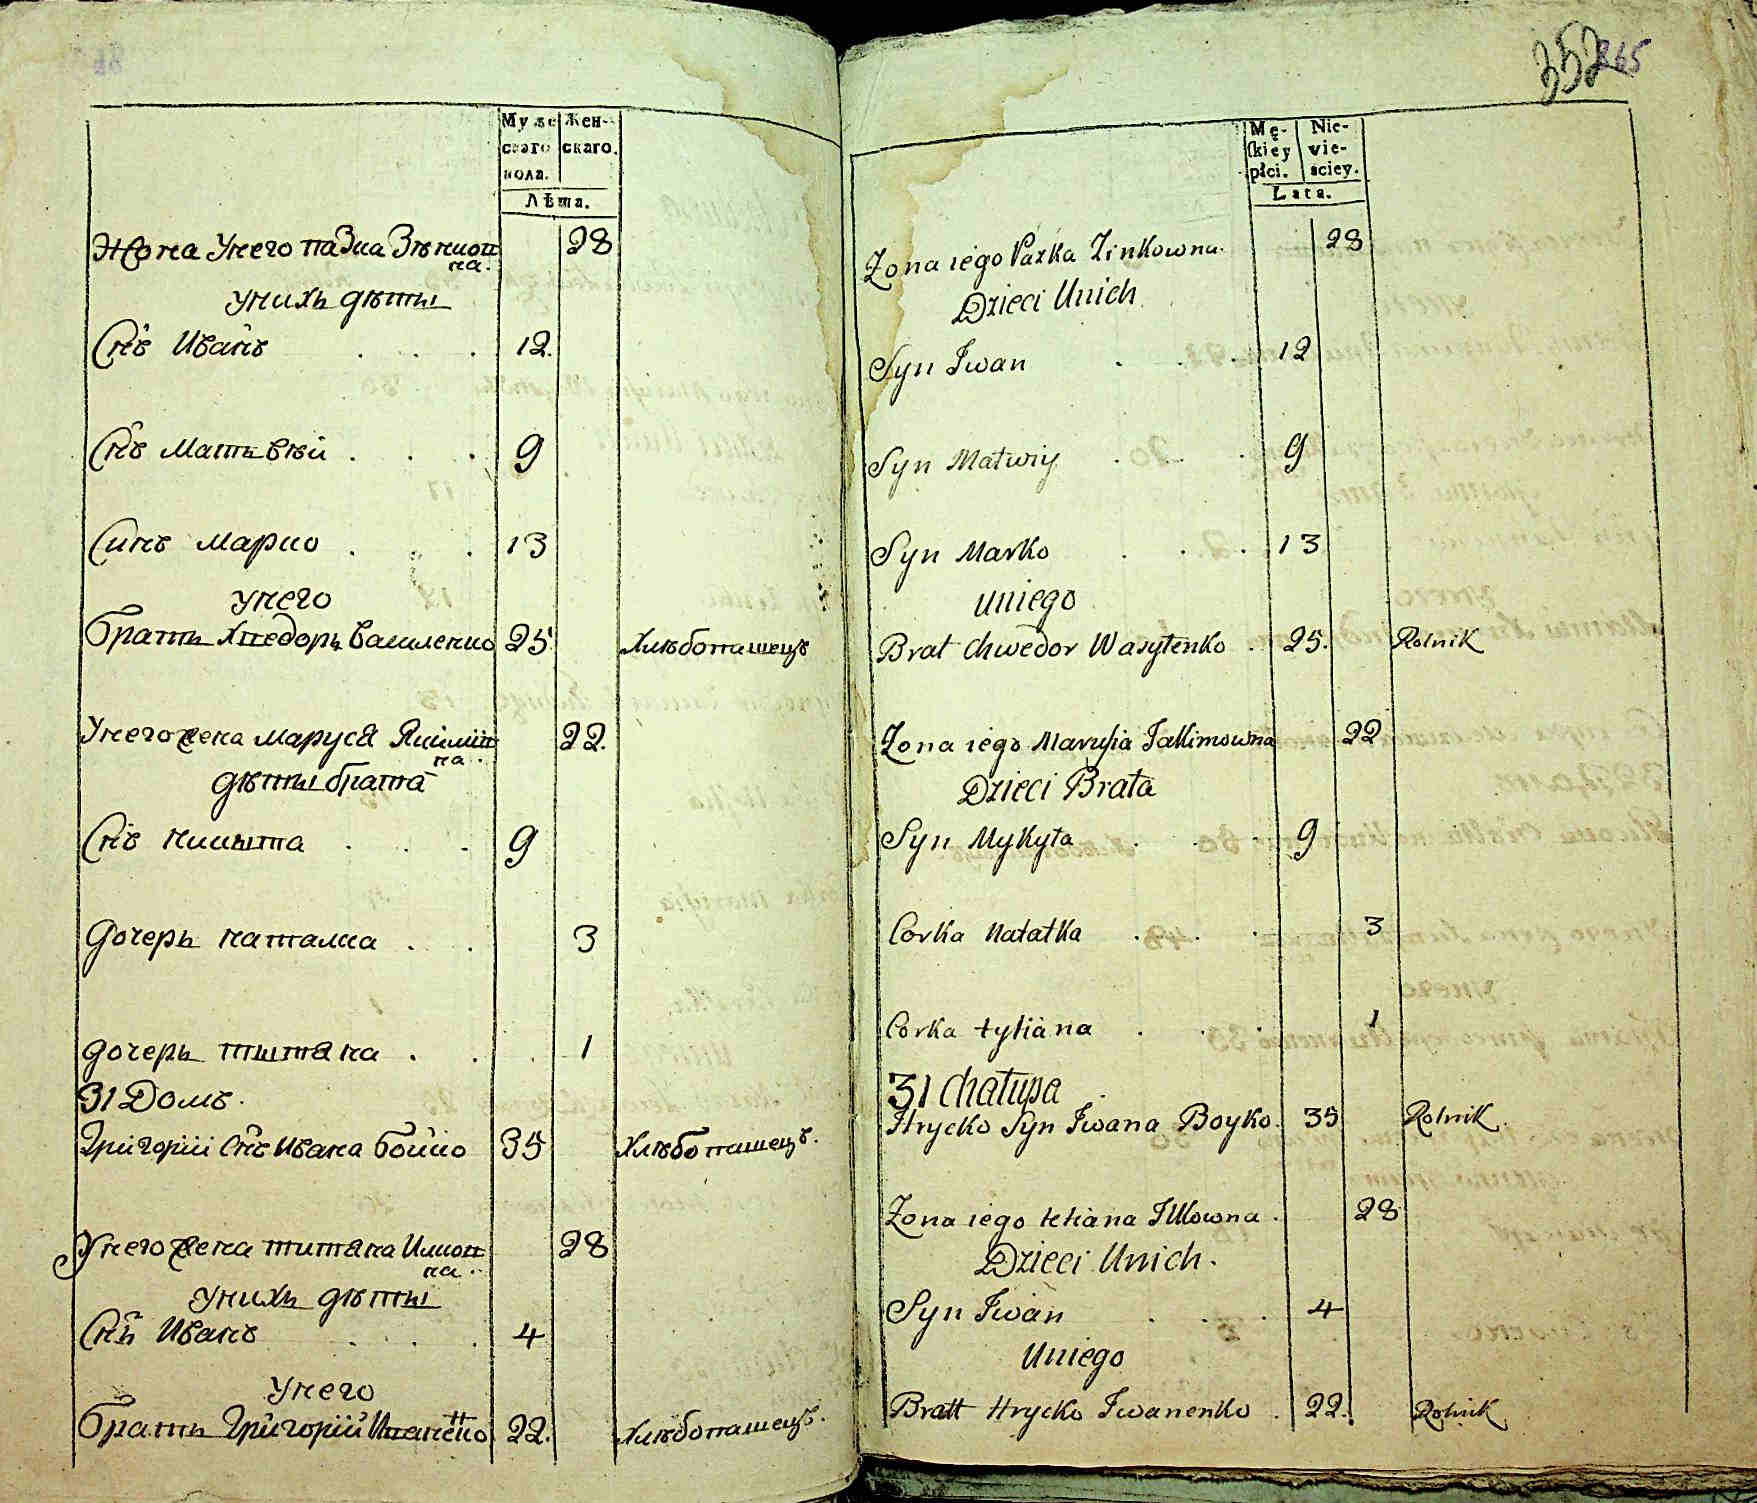 Муже
скаго
пола.
Жен-
скаго.
Лѣта.
Жона Унего пазка Зѣнков
на. 28
Унихъ дѣты
Снъ Иванъ . . . 12.
Снъ Матьвѣй . . . 9
Синъ Марко . . . 13
Унего
братъ Хведоръ Василенко 25. Хлѣбопашецъ
Унего жена Маруся Якимiв
на. 22.
дѣты брата
Снъ Микыта . . . 9
Дочеръ Наталка . . 3
дочеръ тытяна . . . 1
31 Домъ.
Григорiй Снъ Ивана Бойко 35 Хлѣбопашецъ.
Унего жена титяна Илков
на. 28
Унихъ дѣты
Снъ Иванъ . . . 4
Унего
братъ Григорiй Иваненко 22. Хлѣбопашецъ.
352 265
Mę-
ſkiey
płci.
Nie-
vie-
sciey.
Lata.
Zona iego Pazka Zinkowna. 28
Dzieci Unich
Syn Iwan . . . 12
Syn Matwiy . . . 9
Syn Marko . . . 13
uniego
Brat Chwedor Wasylenko . 25. Rolnik
Zona iego Maruſia Jakimowna 22
Dzieci Brata
Syn Mykyta . . . 9
Corka Natalka . . . 3
Corka tytiana . . . 1
31 Chałupa
Hrycko Syn Iwana Boyko. 35 Rolnik.
Zona iego tetiana Illkowna . 28
Dzieci Unich.
Syn Iwan . . . 4
Uniego
Bratt Hrycko Iwanenko . 22. Rolnik